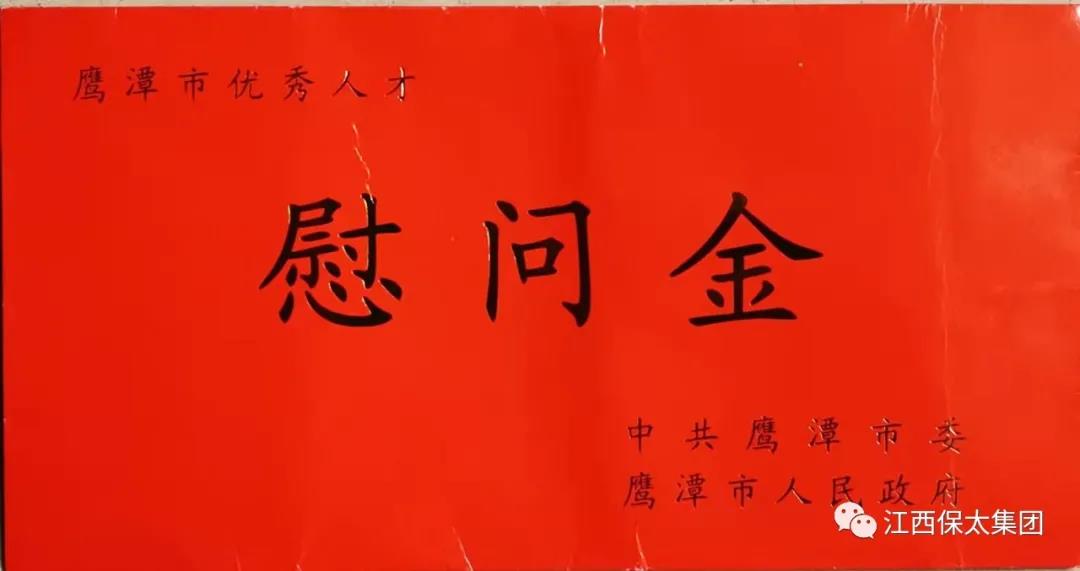 鹰潭市优秀人才
慰问金
中共鹰潭市委
鹰潭市人民政府
江西保太集团